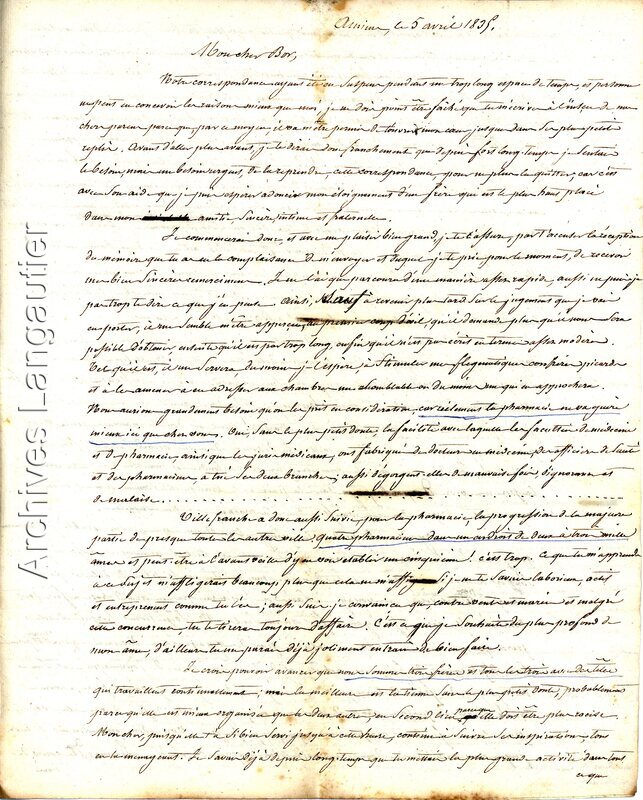 Amiens, le 5 avril 1835.
Mon cher Bor,
Notre correspondance ayant été en suspens pendant un trop long espace de temps, et personne
ne peut en concevoir les raisons mieux que moi, je ne dois point être fâché que tu m'écrives à l'insçu de mes
chers parens parce que, par ce moyen, il va m'être permis de t'ouvrir mon cœur jusque dans ses plus petits
replis. Avant d'aller plus avant, je te dirai donc franchement que depuis fort long-temps je sentais
le besoin, mais un besoin urgent, de la reprendre cette correspondance, pour ne plus la quitter, car c'est
avec son aide que je puis espérer adoucir mon éloignement d'un frère qui est le plus haut placé
dans mon amitié sincère, intime et fraternelle.
Je commencerai donc, et avec un plaisir bien grand, je te l'assure, par t'accuser la réception
du mémoire que tu as eu la complaisance de m'envoyer et duquel je te prie, pour le moment, de recevoir
mes bien sincères remercimens. Je ne l'ai que parcouru d'une manière assez rapide, aussi ne puis-je
par trop te dire ce que j'en pense ainsi, sauf à revenir plus tard sur le jugement que je vais
en porter, il me semble m'être apperçu, au premier coup d'œil, qu'il demande plus qu'il ne nous sera
possible d'obtenir ensuite qu'il est par trop long, enfin qu'il n'est pas conçu en termes assez modérés.
Tel qu'il est, il me servira du moins, je l'espère, à stimuler mes flegmatiques confrères picards
et à les amener à en adresser aux chambres un semblable ou du moins un qui en approchera.
Nous aurions grandement besoin qu'on les prit en considération, car réellement la pharmacie ne va guère
mieux ici que chez vous. Oui, sans le plus petit doute, la facilité avec laquelle les facultés de médecine
et de pharmacie, ainsi que les jurys médicaux, ont fabriqué des docteurs en médecine, des officiers de santé
et des pharmaciens, a tué ces deux branches; aussi dégorgent-elles de mauvaise foi, d'ignorance et
de mulais
Villefranche a donc aussi suivie, pour la pharmacie, la progression de la majeure
partie de presque toutes les autres villes quatre pharmaciens dans un endroit de deux à trois mille
âmes et peut-être à l'avant veille d'y en voir établir un cinquième! c'est trop. Ce que tu m'apprends
à ce sujet m'affligerait beaucoup plus que cela ne m'afflige si je ne te savais laborieux, actif
et entreprenant comme tu l'es; aussi suis-je convaincu que, contre vents et marées et malgré
cette concurrence, tu te tireras toujours d'affaire. C'est ce que je souhaite du plus profond de
mon âme, d'ailleurs tu me parais déjà joliment en train de bien faire.
Je crois pouvoir avancer que nous sommes trois frères et tous les trois avec des têtes
qui travaillent continuellement; mais la meilleure est la tienne sans le plus petit doute, probablement
parcequ'elle est mieux organisée que les deux autres, en second lieu, parceque elle doit être plus exercée.
Mon cher, puisqu'elle t'a si bien servi jusqu'à cette heure, continue à suivre ses inspirations, tout
en la ménageant. Je savais déjà depuis long-temps que tu mettais la plus grande activité dans tout
ce que
Archives Langautier